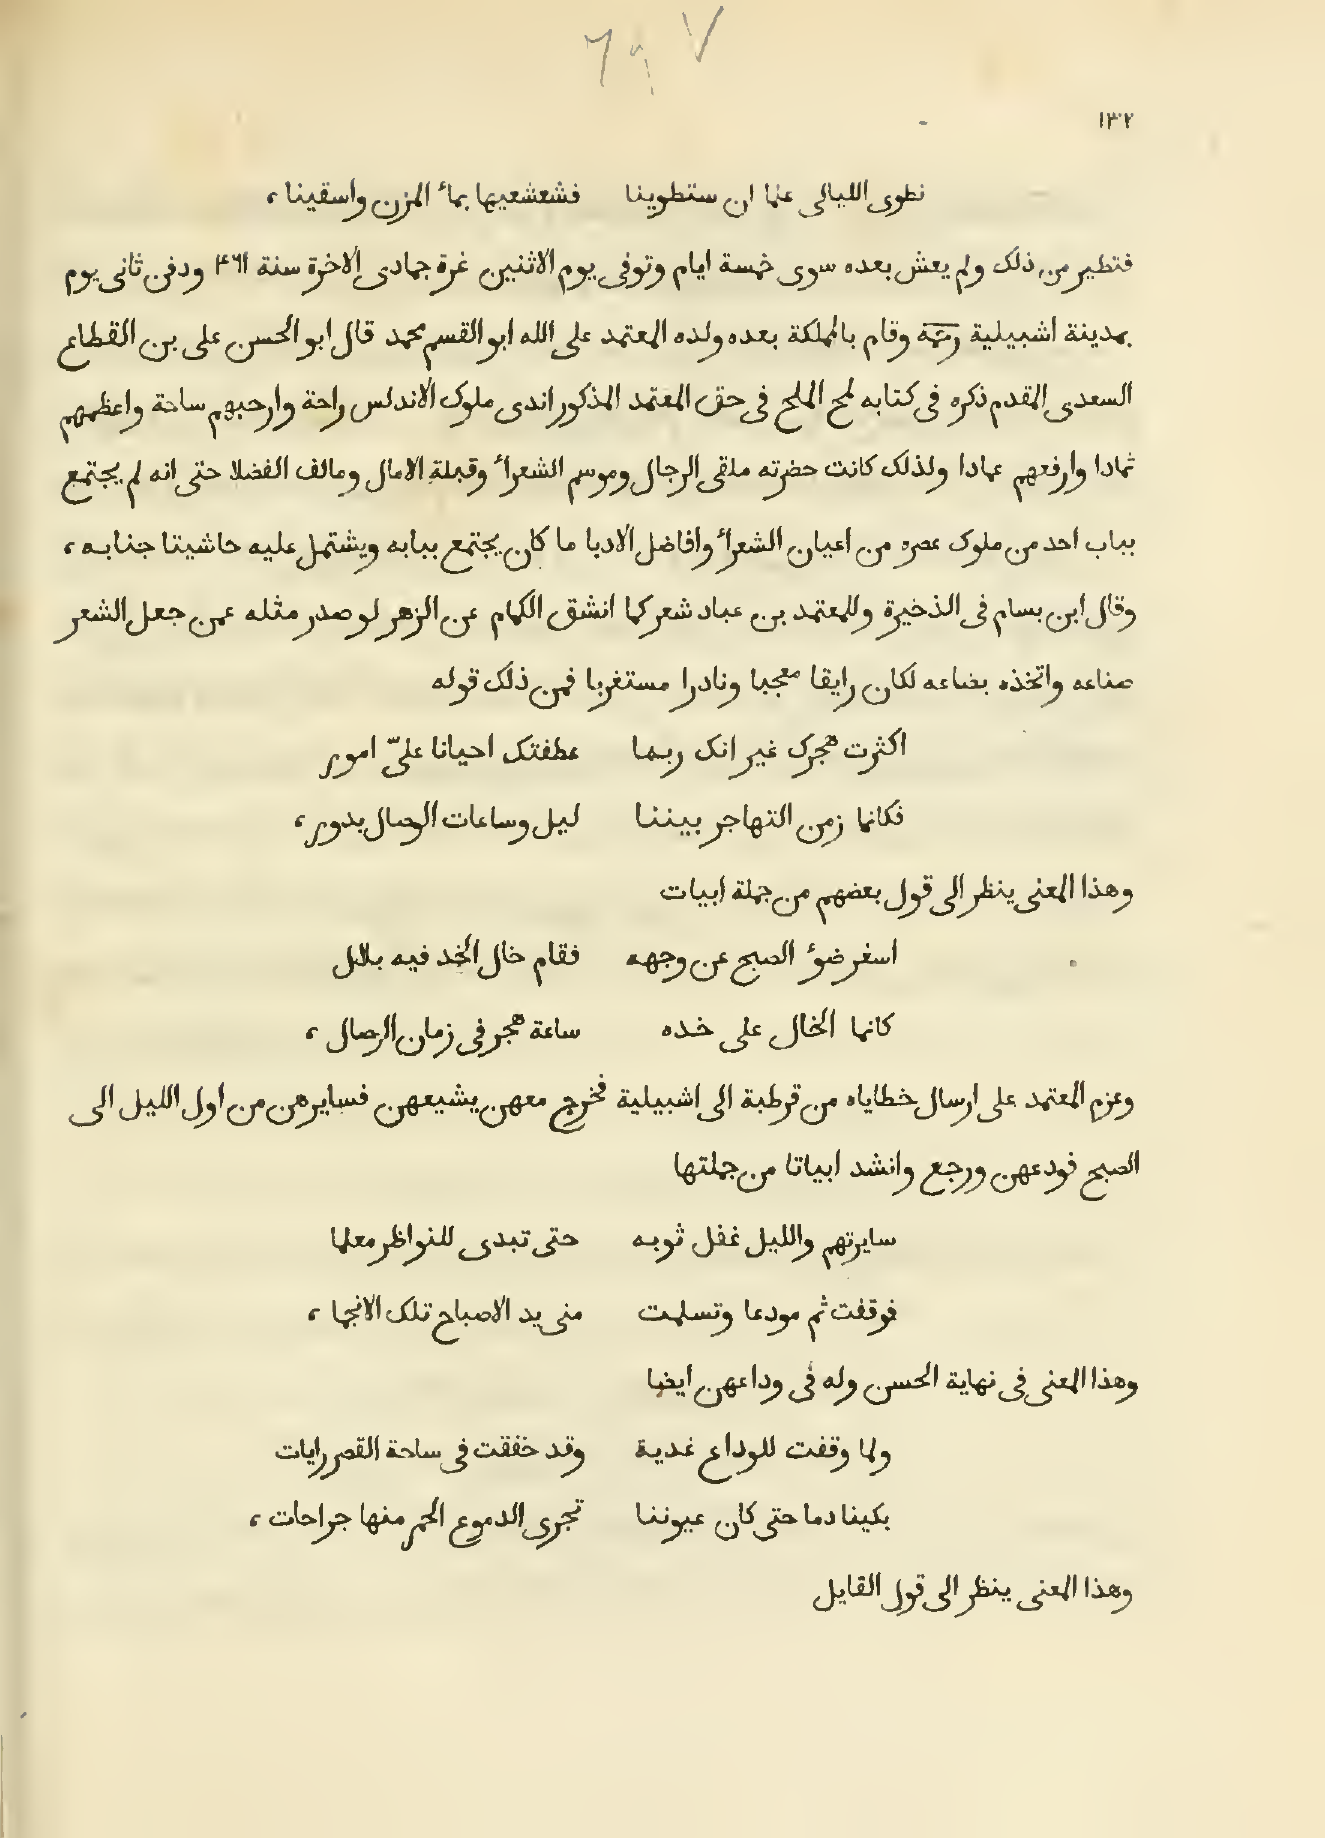 ٦٩٧
١٣٢
نطوى الليالى علما ان ستطوينا فشعشعيها بماء المزن واسقينا،
فتطير من ذلك ولم يعش بعده سوى خمسة ايام وتوفى يوم الاثنين غرة جمادى الاخرة سنة ٤٦١ ودفن ثانى يوم
بمدينة اشبيلية رحمه وقام بالمملكة بعده ولده المعتمد على الله ابو القسم محمد قال ابو الحسن على بن القطاع
السعدى المقدم ذكره فى كتابه لمح الملح فى حق المعتمد المذكور اندى ملوك الاندلس راحة وارحبهم ساحة واعظمهم
ثمادا وارفعهم عمادا ولذلك كانت حضرته ملقى الرجال وموسم الشعراء وقبلة الامال ومالف الفضلا حتى انه لم يجتمع
بباب احد من ملوك عصره من اعيان الشعراء وافاضل الادبا ما كان يجتمع ببابه ويشتمل عليه حاشيتا جنابه،
وقال ابن بسام فى الذخيرة وللمعتمد بن عباد شعر كما انشق الكمام عن الزهر لو صدر مثله عمن جعل الشعر
صناعه واتخذه بضاعه لكان رايقا معجبا ونادرا مستغربا فمن ذلك قوله
اكثرت هجرك غير انك ربما عطفتك احيانا علىّ امور
فكانما زمن التهاجر بيننا ليل وساعات الوصال بدور،
وهذا المعنى ينظر الى قول بعضهم من جملة ابيات
اسفر ضوء الصبح عن وجهه فقام خال الخد فيه بلال
كانما الخال على خده ساعة هجر فى زمان الوصال،
وعزم المعتمد على ارسال خطاياه من قرطبة الى اشبيلية فخرج معهن يشيعهن فسايرهن من اول الليل الى
الصبح فودعهن ورجع وانشد ابياتا من جملتها
سايرتهم والليل غفل ثوبه حتى تبدى للنواظر معلما
فوقفت ثم مودعا وتسلمت منى يد الاصباح تلك الانجما،
وهذا المعنى فى نهاية الحسن وله فى وداعهن ايضا
ولما وقفت للوداع غدية وقد خفقت فى ساحة القصر رايات
بكينا دما حتى كان عيوننا تجرى الدموع الحمر منها جراحات،
وهذا المعنى ينظر الى قول القايل